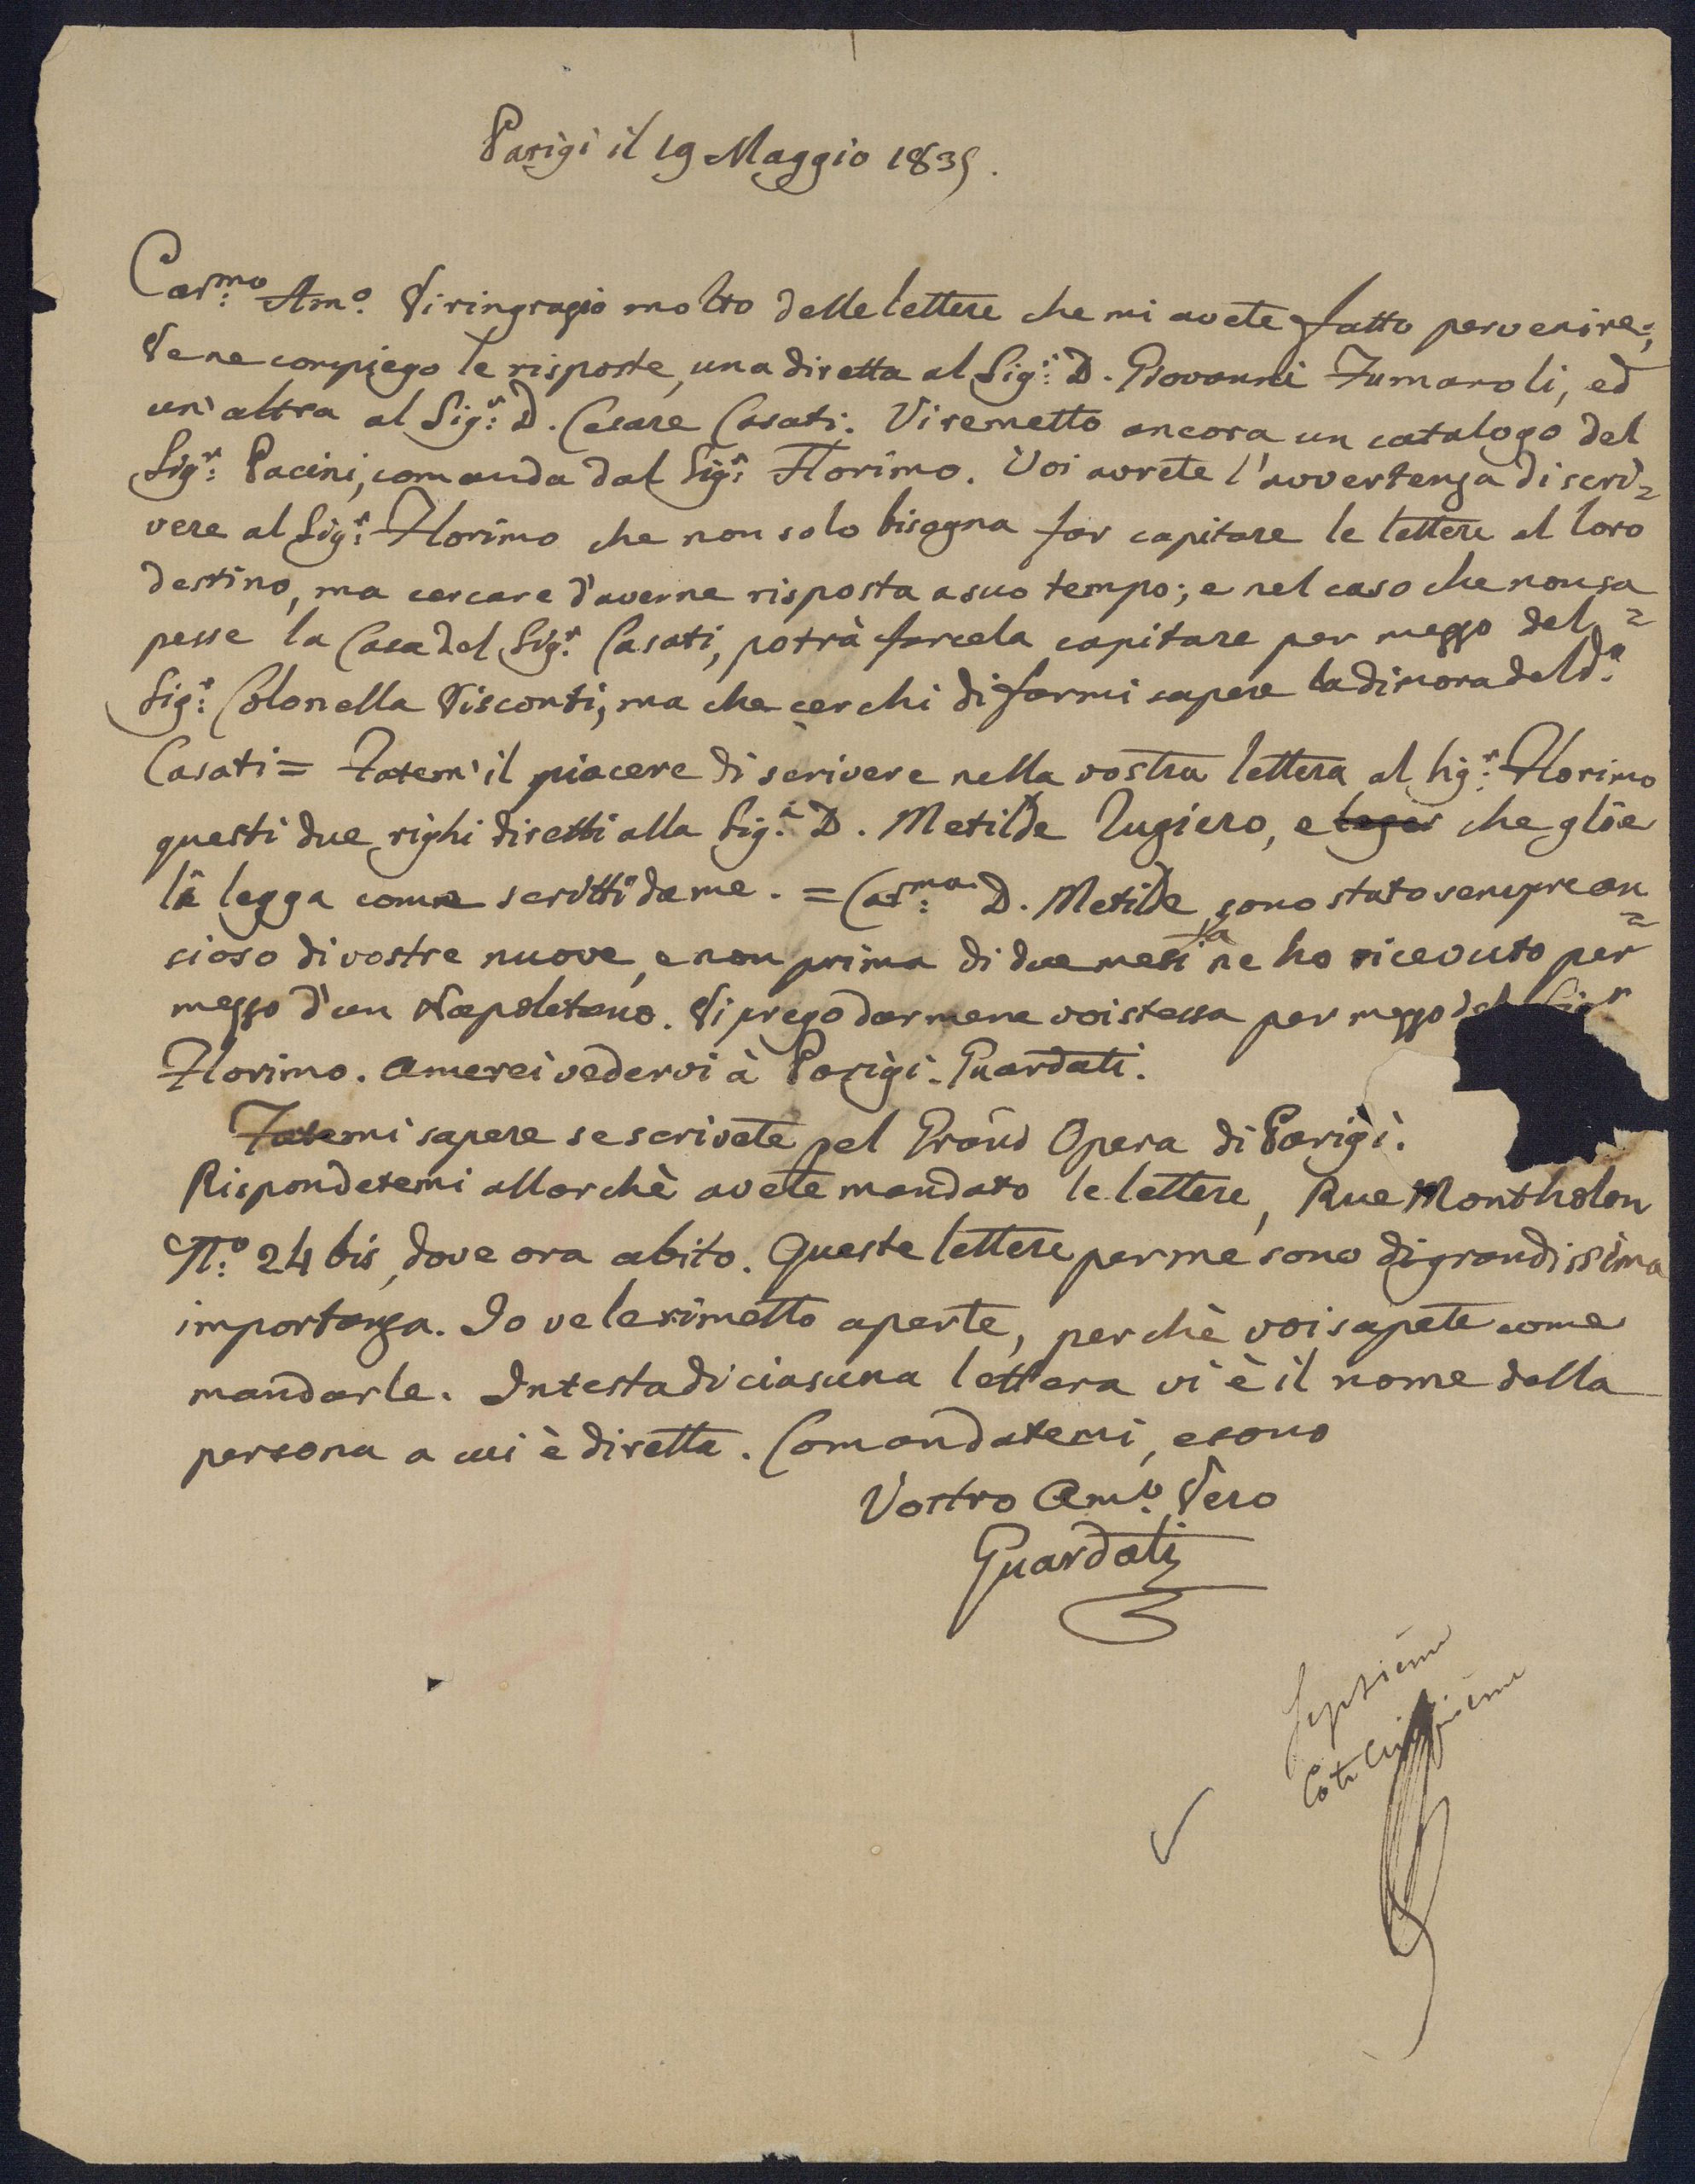 Parigi il 19 Maggio 1835.
Car:mo Am:o Vi ringrazio molto delle lettere che mi avete fatto pervenire;
Ve ne compiego le risposte, una diretta al Sig:r D. Giovanni Fumaroli, ed
un'altra al Sig:r D. Cesare Casati. Vi remetto ancora un catalogo del
Sig:r Pacini, comanda dal Sig:r Florimo. Voi avrete l'avvertenza di scri=
vere al Sig:r Florimo che non solo bisogna far capitare le lettere al loro
destino, ma cercare d'averne risposta a suo tempo; e nel caso che non sa=
pesse la Casa del Sig:r Casati, potrà farcela capitare per mezzo del
Sig:r Colonella Visconti, ma che cerchi di farmi sapere la dimora del d:o
Casati = Fatemi il piacere di scrivere nella vostra lettera al Sig:r Florimo
questi due righi diretti alla Sig:a D. Metilde Rugiero, e che glie
li legga come scritti da me. = Car:ma D. Metilde, sono stato sempre an=
sioso di vostre nuove, e non prima di due mesi fa ne ho ricevuto per
mezzo d'un Napoletano. Vi prego darmene voi stessa per mezzo del Sigr
Florimo. Amerei vedervi à Parigi. Guardati.
Fatemi sapere se scrivete pel Grand Opera di Parigi.
Rispondetemi allorchè avete mandato le lettere, Rue Montholon
N:o 24 bis, dove ora abito. Queste lettere per me sono di grandissima
importanza. Io ve le rimetto aperte, perchè voi sapete come
mandarle. In testa di ciascuna lettera vi è il nome della
persona a cui è diretta. Comandatemi, e sono
Vostro Am:o Vero
Guardati
Septieme
Cote